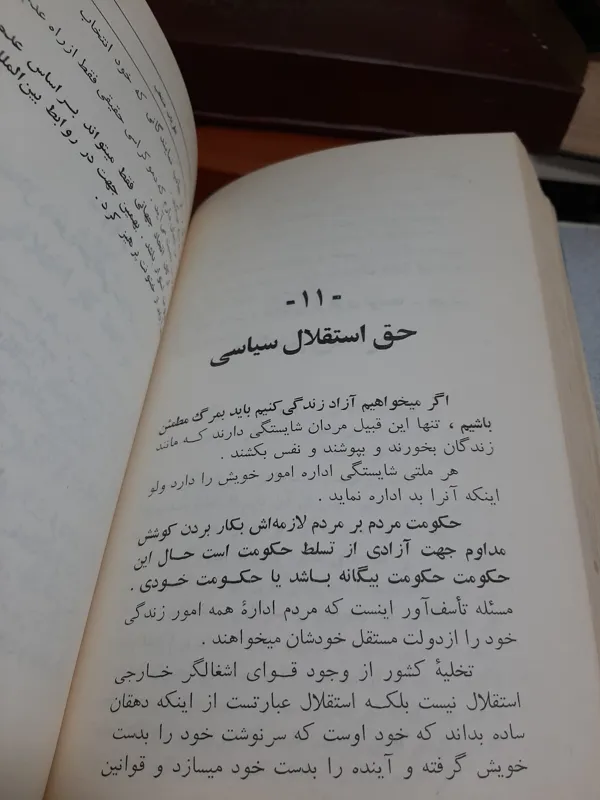 که خود انتخاب
فقط از راه
فقط میتواند بر اساس
جهت در روابط بین‌الملل
کرد.
- ۱۱ -
حق استقلال سیاسی
اگر میخواهیم آزاد زندگی کنیم باید بمرگ مطمئن
باشیم ، تنها این قبیل مردان شایستگی دارند که مانند
زندگان بخورند و بپوشند و نفس بکشند .
هر ملتی شایستگی اداره امور خویش را دارد ولو
اینکه آنرا بد اداره نماید .
حکومت مردم بر مردم لازمه‌اش بکار بردن کوشش
مداوم جهت آزادی از تسلط حکومت است حال این
حکومت حکومت بیگانه باشد یا حکومت خودی .
مسئله تأسف‌آور اینست که مردم ادارهٔ همه امور زندگی
خود را ازدولت مستقل خودشان میخواهند .
تخلیهٔ کشور از وجود قوای اشغالگر خارجی
استقلال نیست بلکه استقلال عبارتست از اینکه دهقان
ساده بداند که خود اوست که سرنوشت خود را بدست
خویش گرفته و آینده را بدست خود میسازد و قوانین